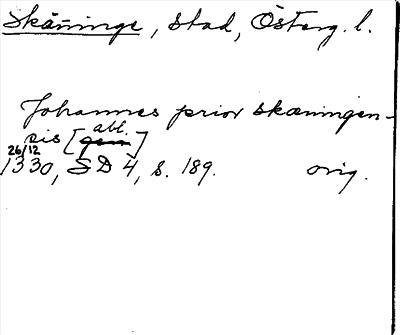 Skänninge, stad, Österg. l.
Johannes prior skæningen-
sis [gen abl.]
26/12
1330, SD 4, s. 189. orig.